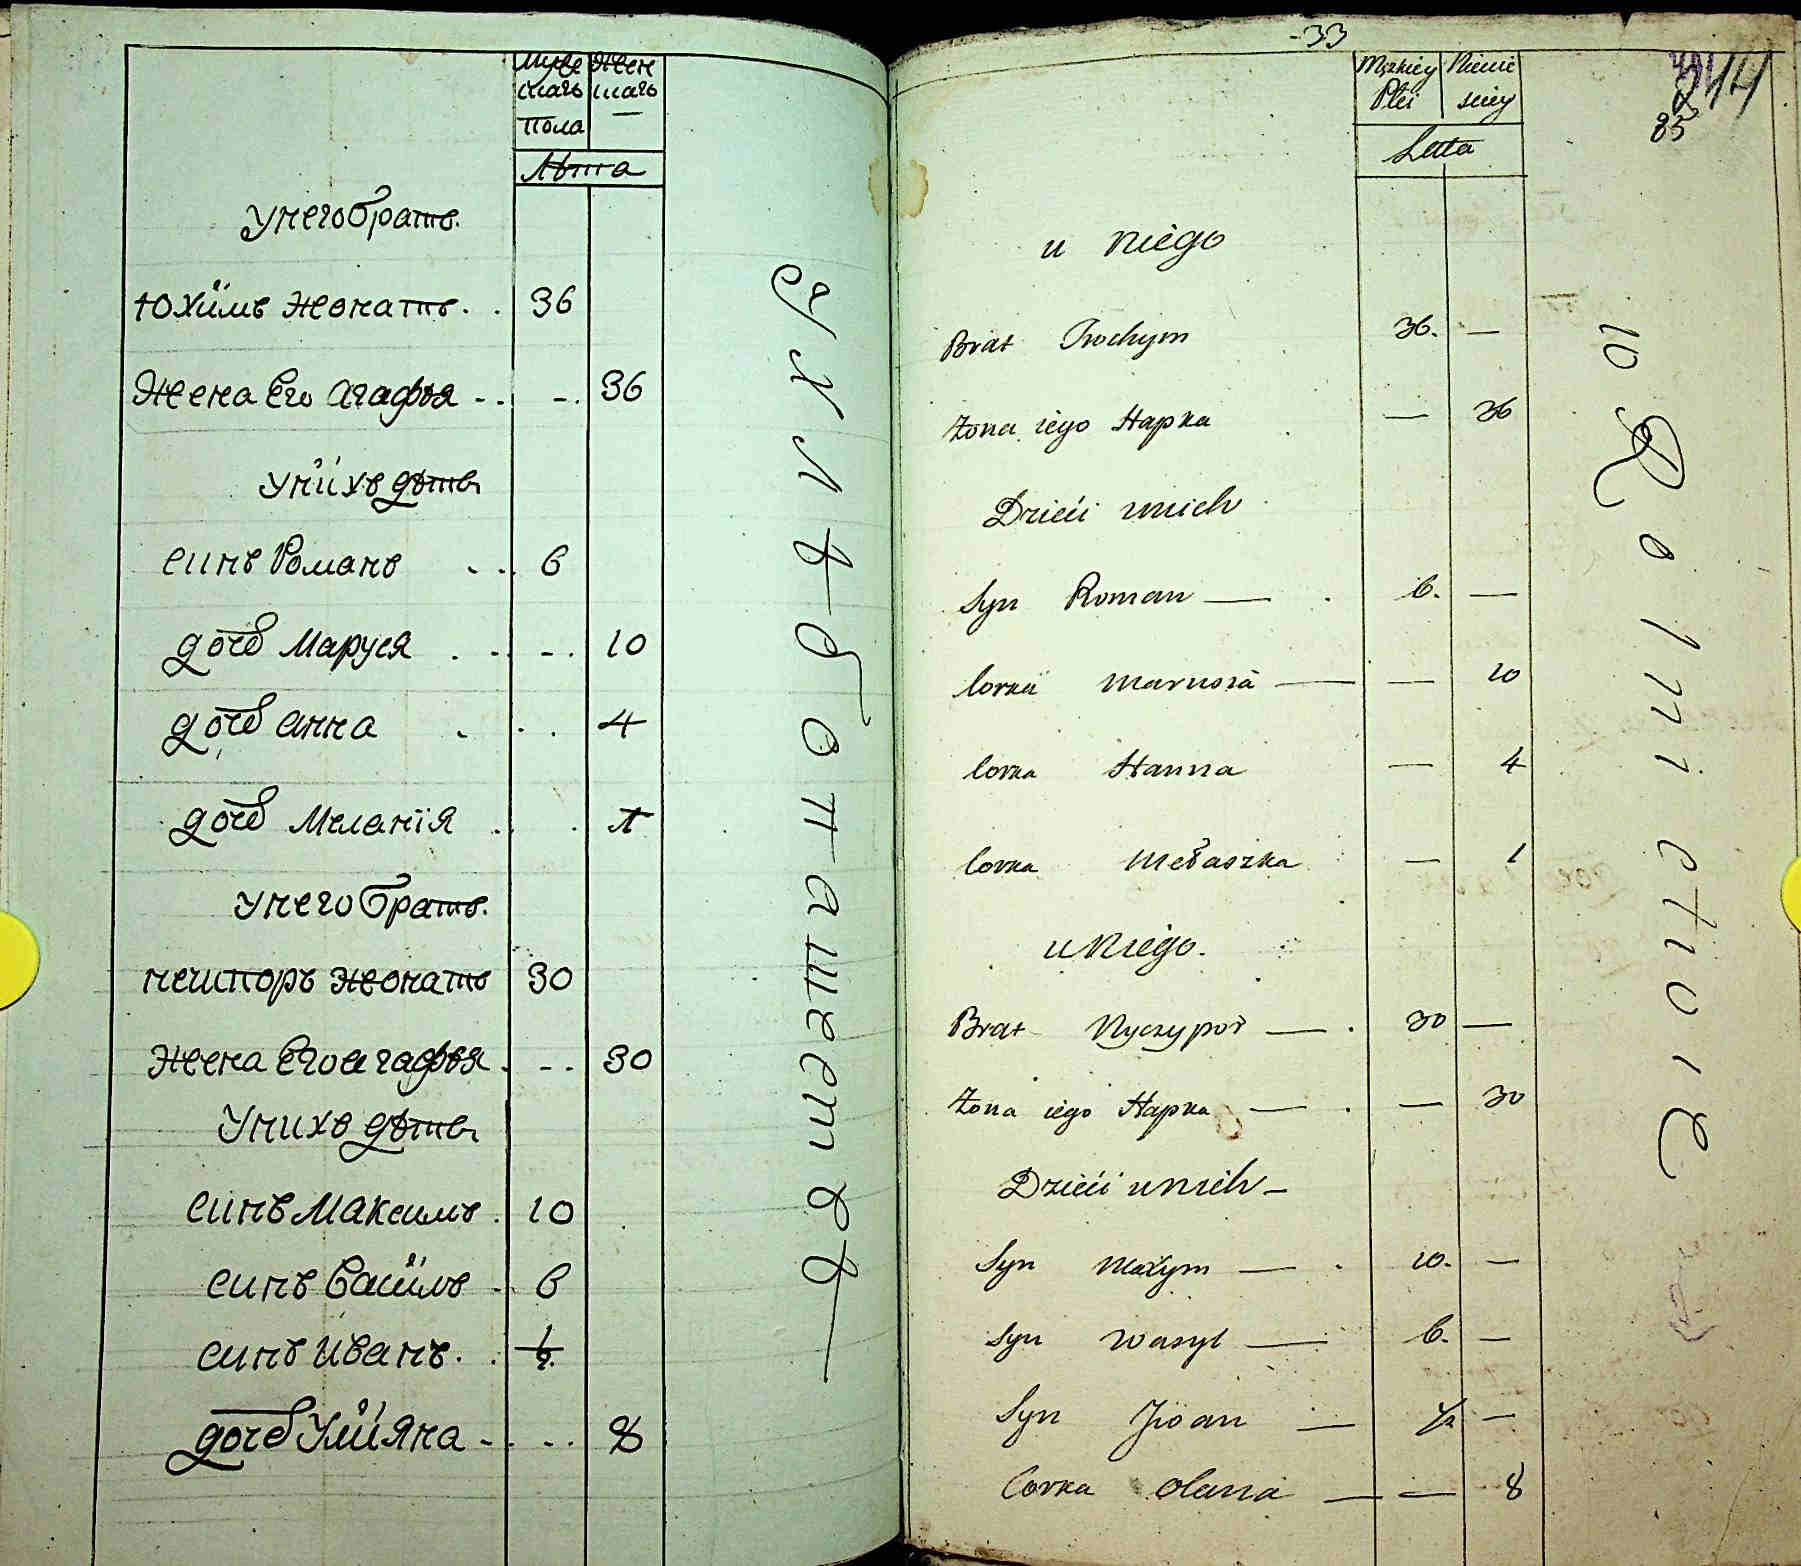 Муже Жен
скагѡ скагѡ
пола —
Лѣта
У него братъ.
Юхимъ жонатъ . . 36
Жена Его Агафья - . - . 36
У нихъ дѣти
синъ Романъ . . 6
дочь Маруся . - - . 10
дочь Анна . . . 4
дочь Меланія . . 1
У него братъ.
Нечипоръ жонатъ 30
Жена Его Агафья . - . 30
У нихъ дѣти
синъ Максимъ . 10
синъ Василь . 6
синъ Иванъ . . ½
дочь Улияна - . - . 8
Хлѣбопашество
33
Męzkiey Niewie
Płci sciey
Lata
314
85
u niego
Brat Juchym 36. —
Żona iego Hapka — 36
Dzieci u nich
Syn Roman — . 6. —
Corka Marusia — — 10
Corka Hanna — 4
Corka Mełaszka — 1
u niego.
Brat Nyczypor — . 30 —
Żona iego Hapka — . — 30
Dzieci u nich —
Syn Maxym — . 10. —
Syn Wasyl — 6. —
Syn Jwan — ½ —
Corka Olana — — 8
10 Rolnictwo